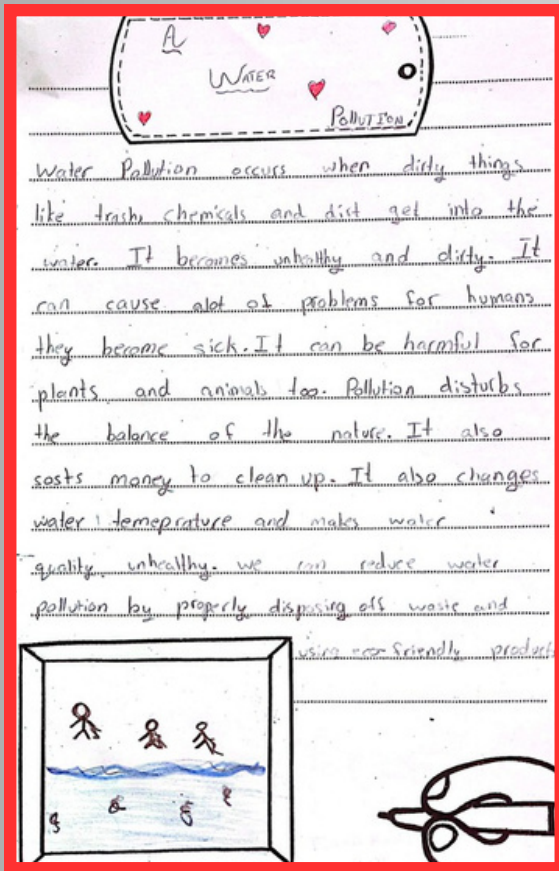 A
WATER
POLLUTION
Water Pollution occurs when dirty things
like trash, chemicals and dirt get into the
water. It becomes unhealthy and dirty. It
can cause alot of problems for humans
they become sick. It can be harmful for
plants and animals too. Pollution disturbs
the balance of the nature. It also
sosts money to clean up. It also changes
water temeprature and makes water
quality unhealthy. we can reduce water
pollution by properly disposing off waste and
using eco-friendly product